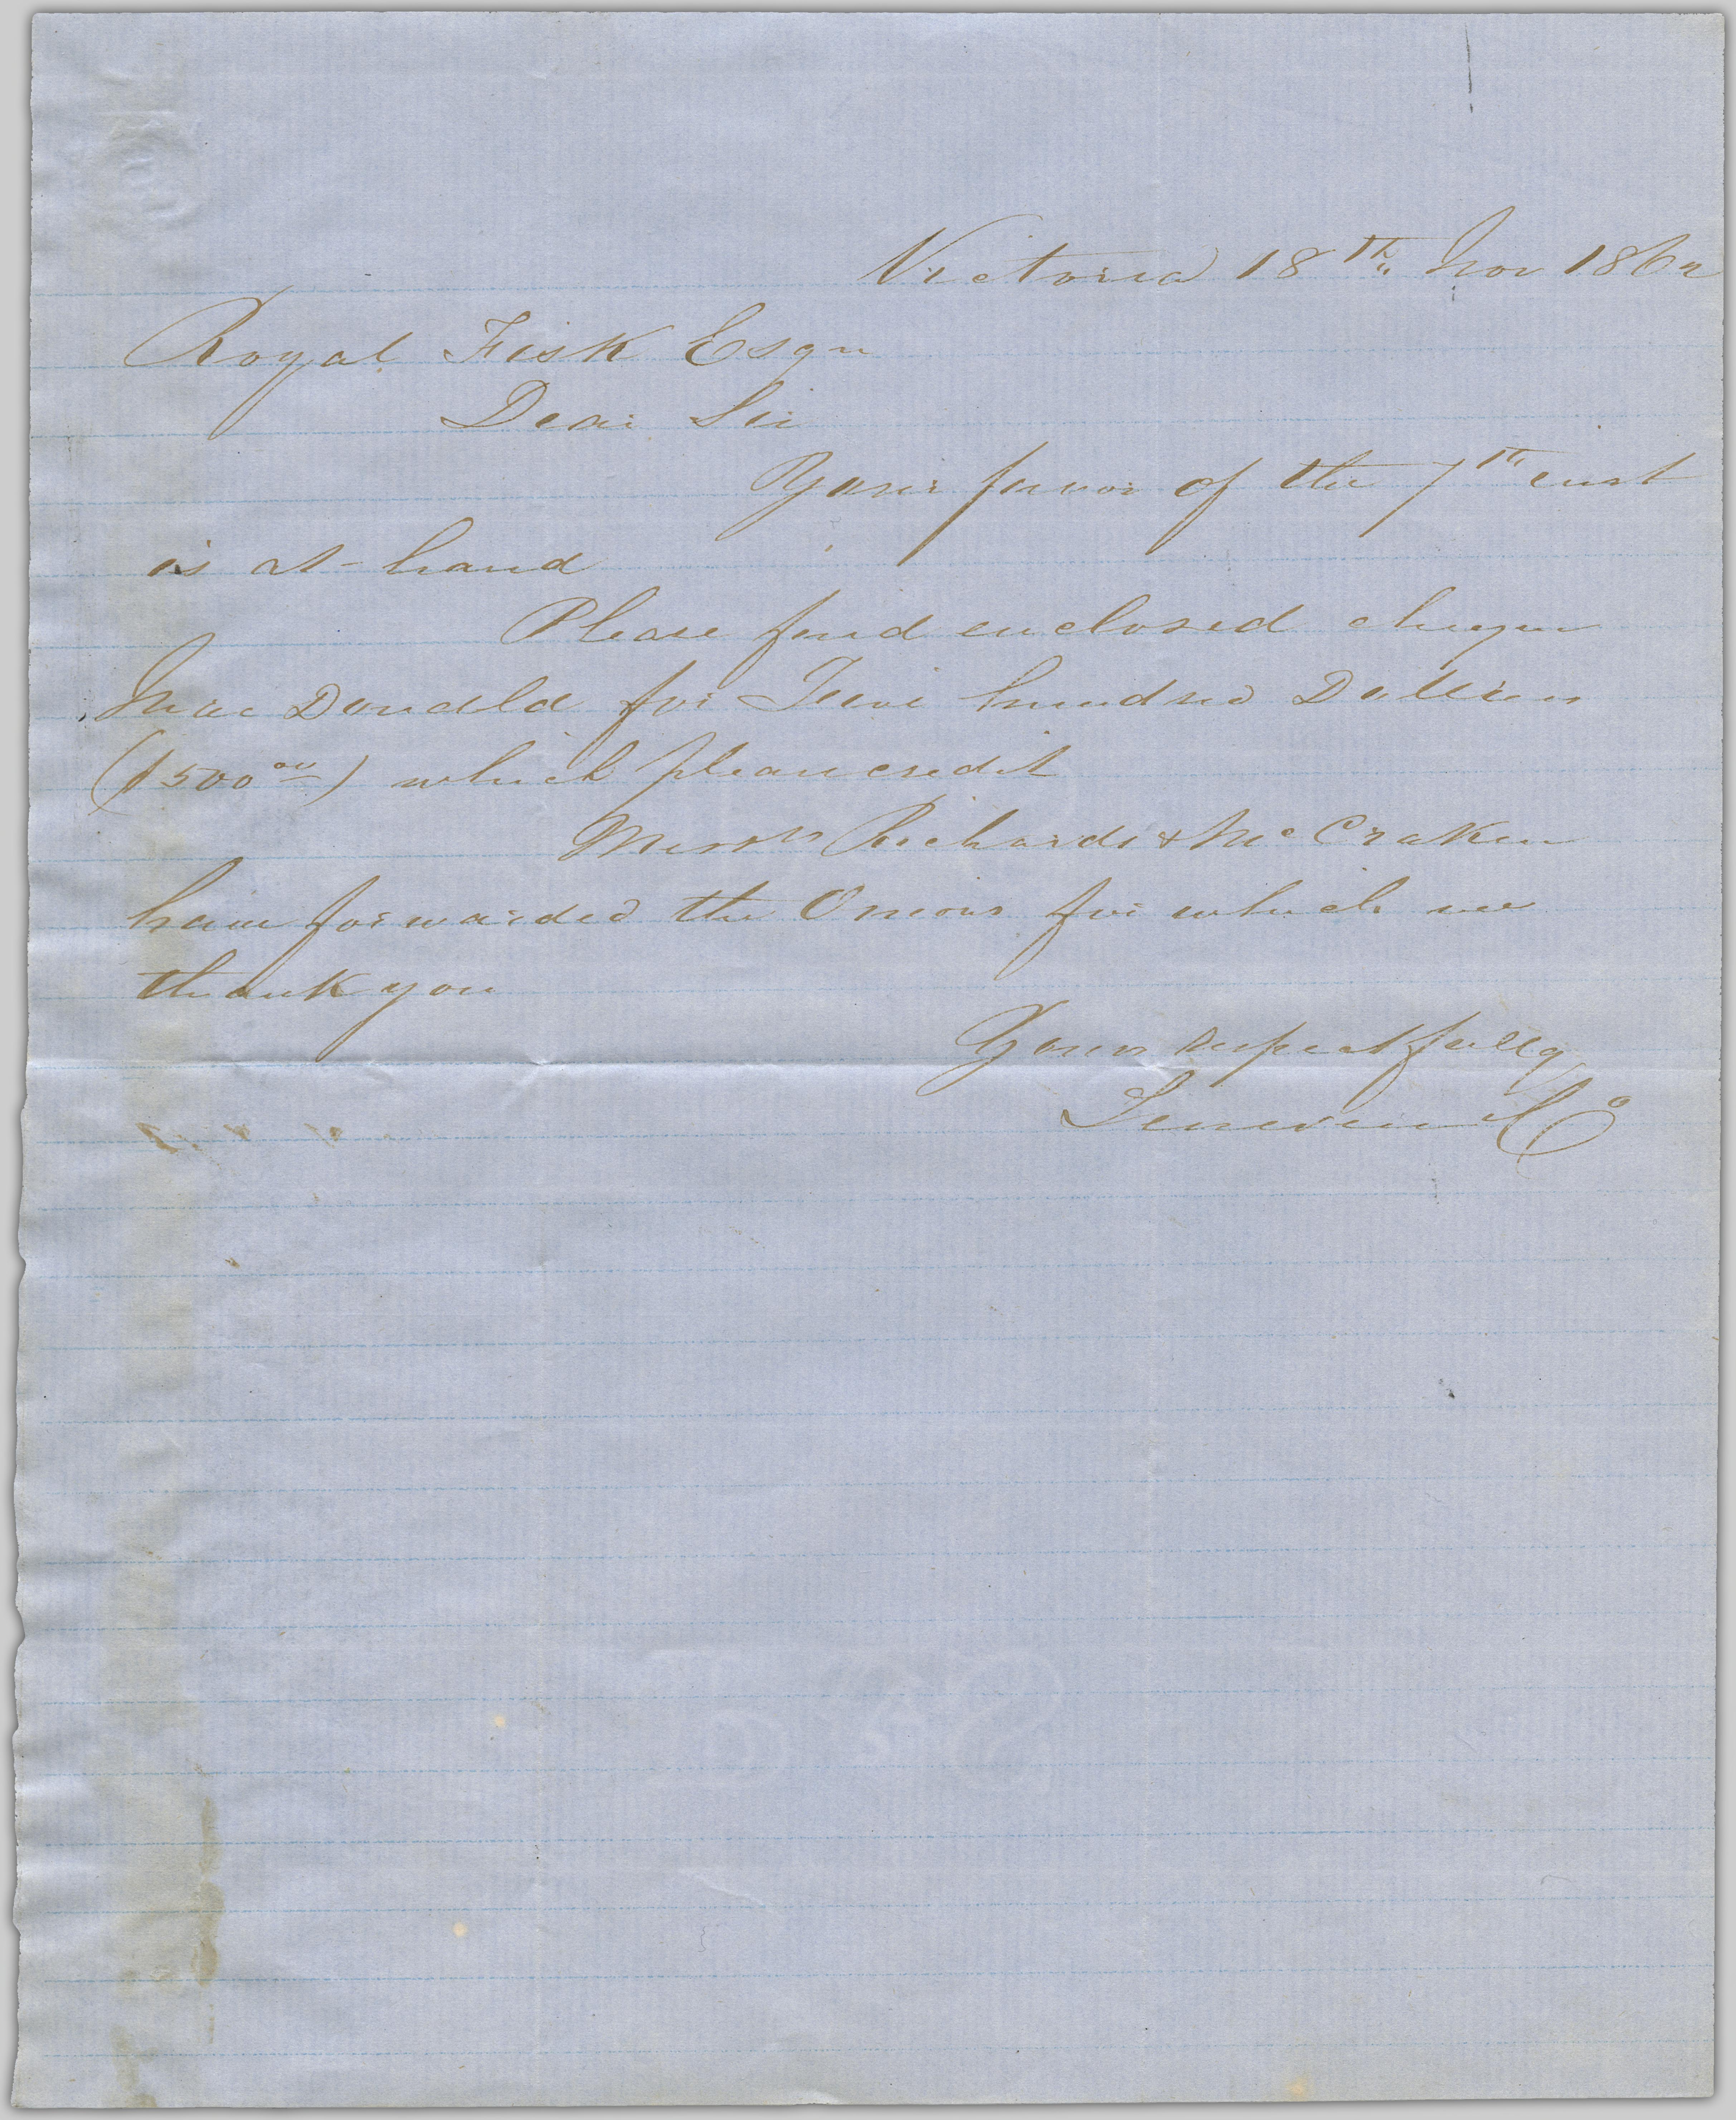 Victoria 18th Nov 1862
Royal Fisk Esqr
Dear Sir
Your favor of the 7th inst
is at hand
Please find enclosed cheque
MacDonald for Five hundred Dollars
($500.00) which please credit
Messrs Richards & McCraken
have forwarded the Onions for which we
thank you
Yours respectfully
& Co